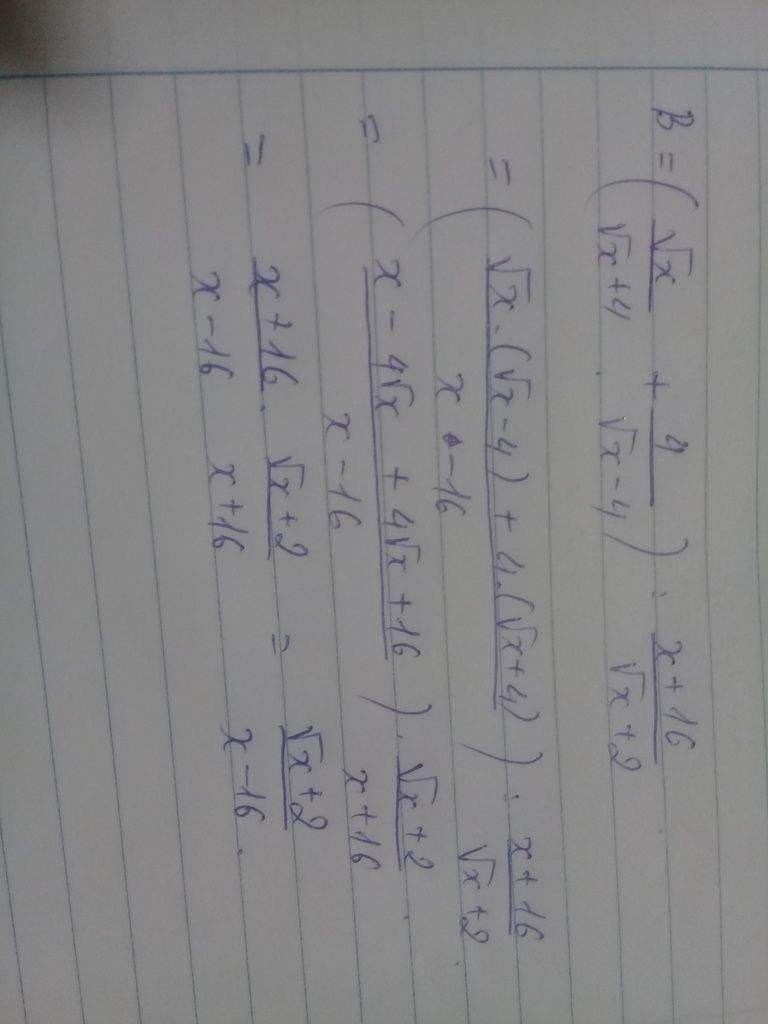 B = (√x/(√x+4) + 4/(√x-4)) : (x+16)/(√x+2)
= ((√x.(√x-4) + 4.(√x+4))/(x-16)) : (x+16)/(√x+2)
= ((x-4√x + 4√x+16)/(x-16)) . (√x+2)/(x+16)
= (x+16)/(x-16) . (√x+2)/(x+16) = (√x+2)/(x-16).